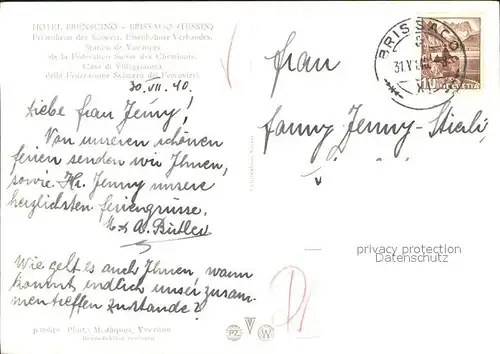 HOTEL BRENSCINO – BRISSAGO (TESSIN)
Ferienheim des Schweiz. Eisenbahner-Verbandes.
Station de Vacances
de la Fédération Suisse des Cheminots.
Casa di Villeggiatura
della Federazione Svizzera dei Ferrovieri.
30. VII. 40.
Liebe Frau Jenny!
Von unseren schönen
Ferien senden wir Ihnen,
sowie Hr. Jenny unsere
herzlichsten Feriengrüsse.
A. Bütler
Wie geht es auch Ihnen, wann
kommt endlich unser zusam-
mentreffen zustande?
Phot. M.
Yverdon
Frau
Fanny Jenny-Stierli,
BRISSAGO
privacy protection
watermark
PZ
W